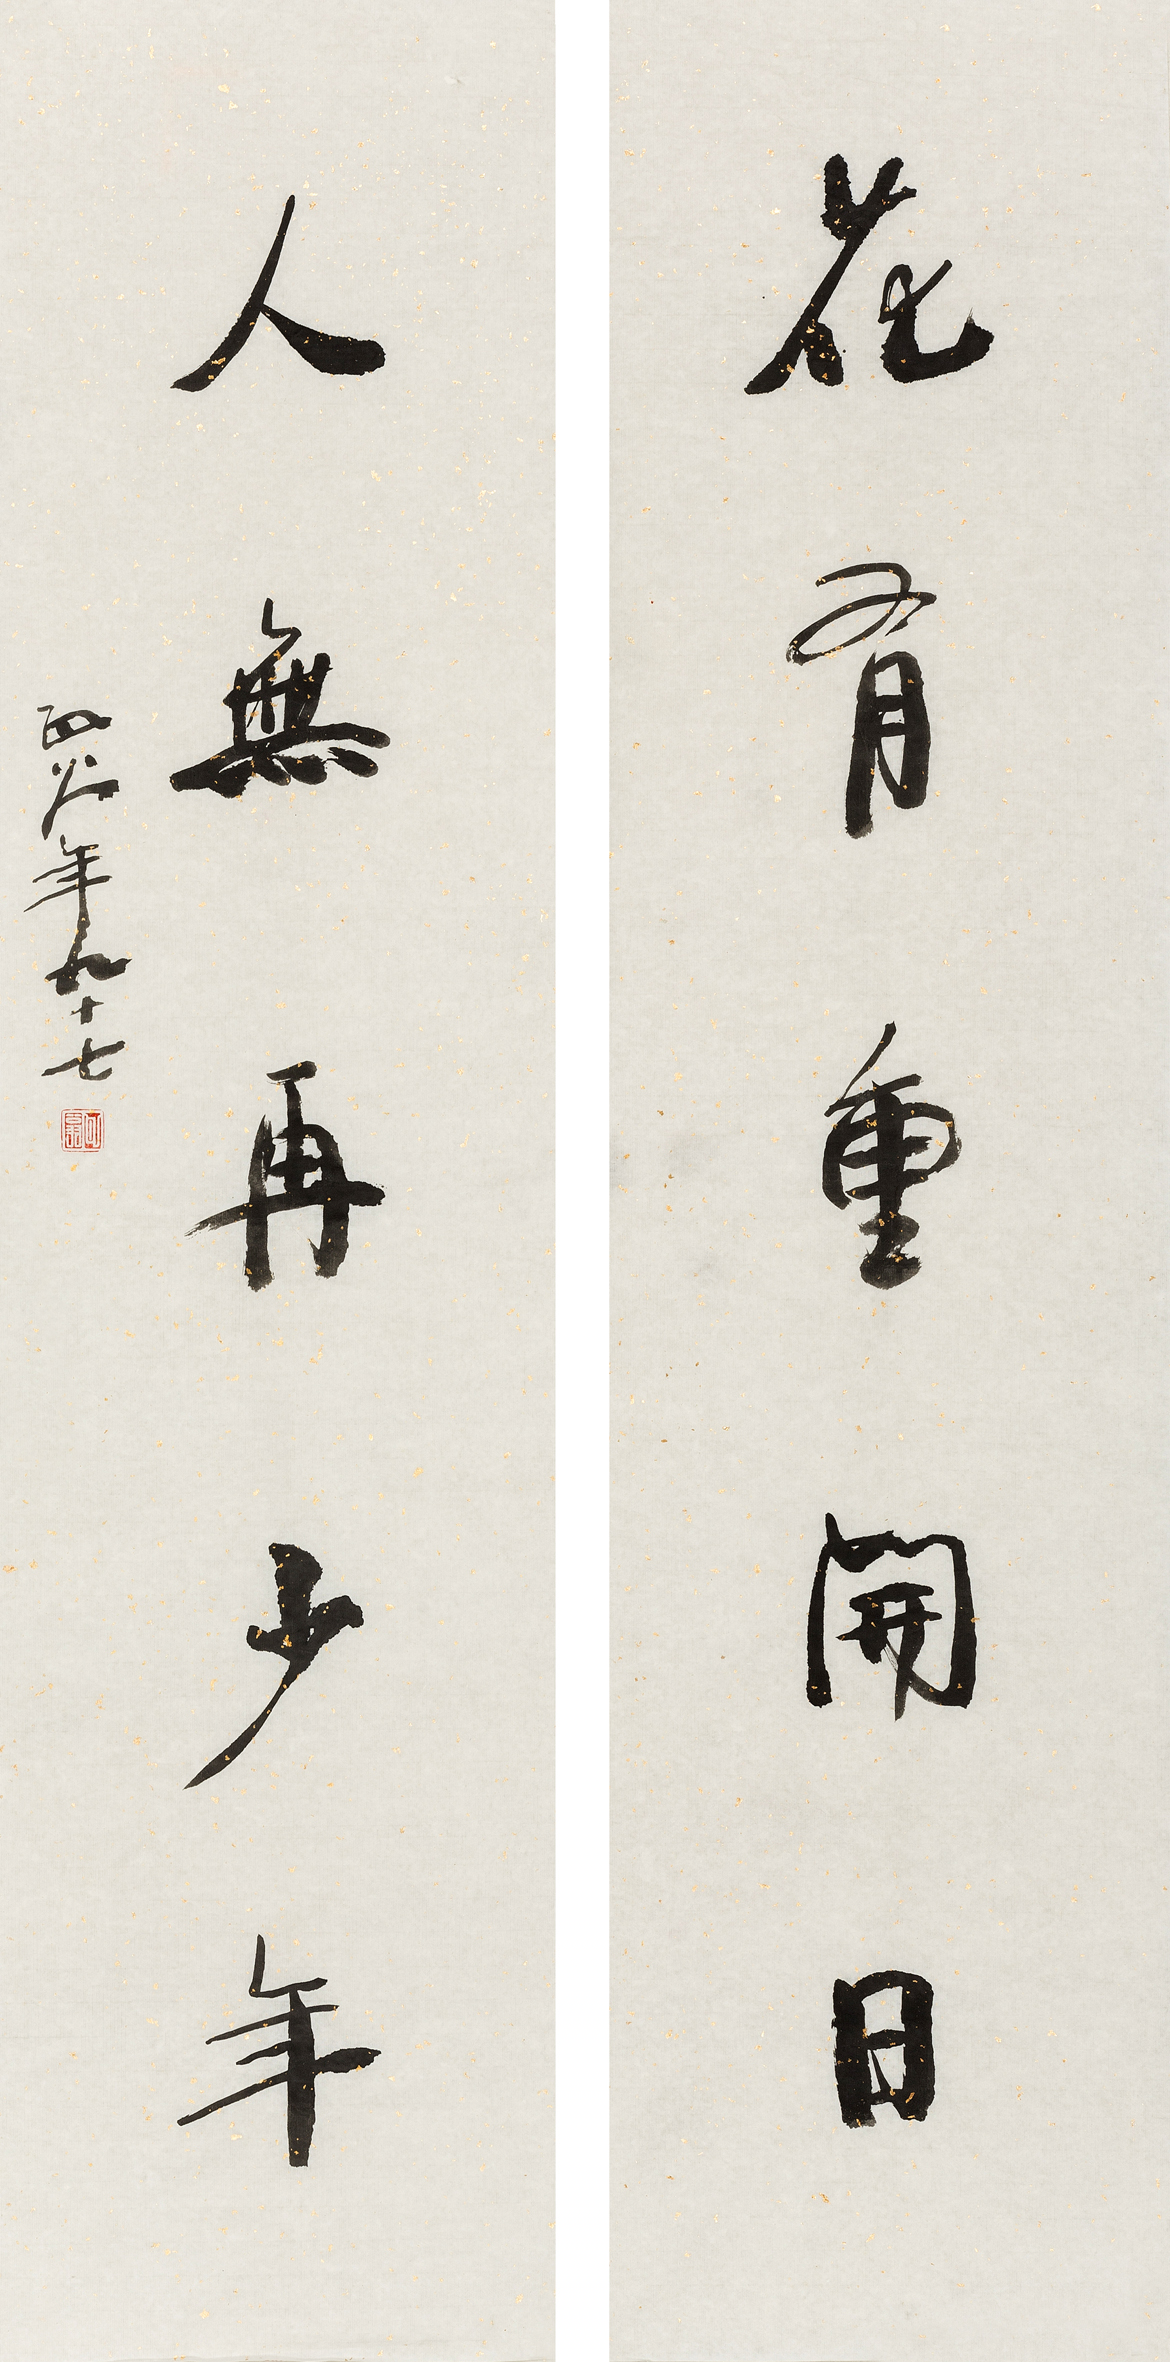 花有重開日
人無再少年
年九十七